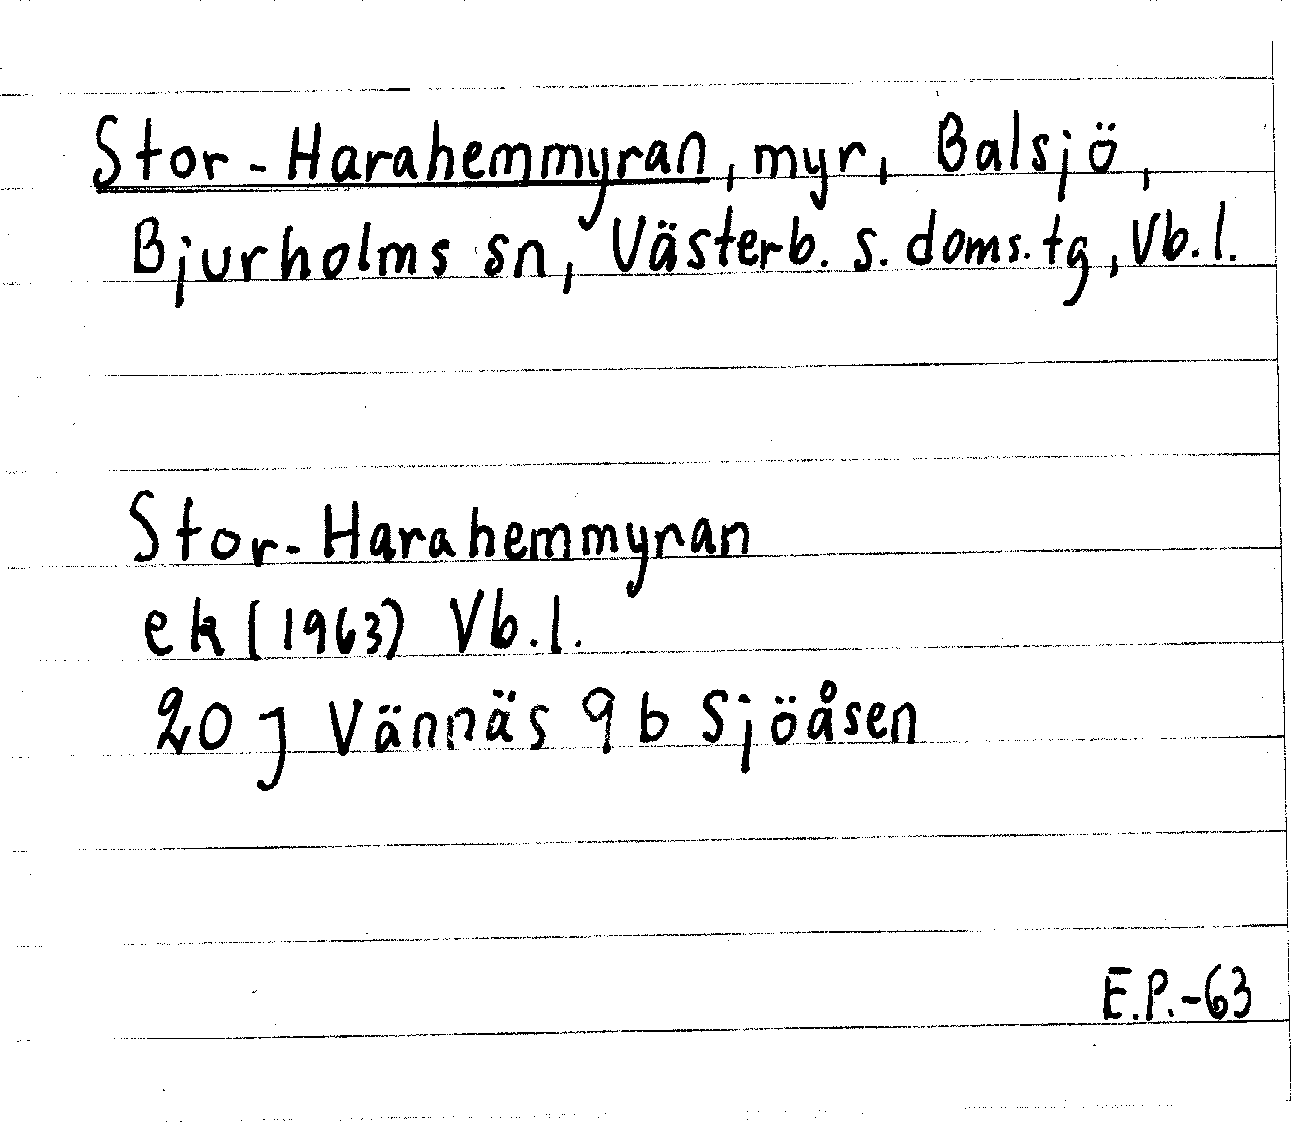 Stor-Harahemmyran, myr, Balsjö,
Bjurholms sn, Västerb. s. doms. tg, Vb. l.
Stor-Harahemmyran
ek (1963) Vb. l.
20 J Vännäs 9 b Sjöåsen
E.P.-63